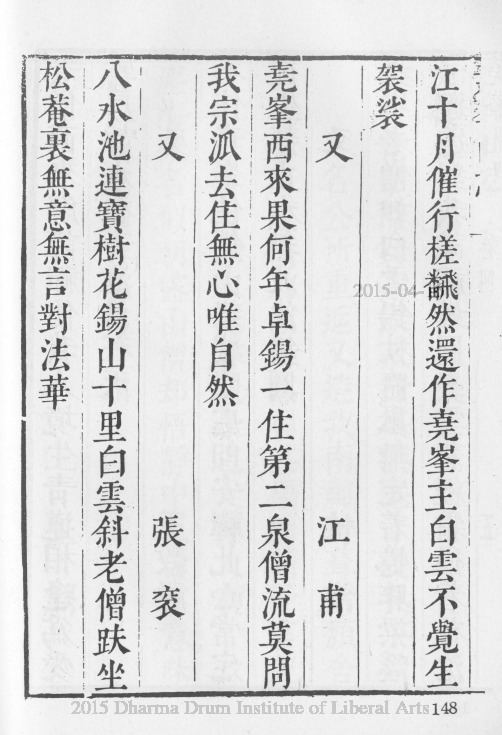 江十月催行槎飜然還作堯峯主白雲不覺生
袈裟
又　江甫
堯峯西來果何年卓錫一住第二泉僧流莫問
我宗派去住無心唯自然
又　張袞
八水池連寶樹花錫山十里白雲斜老僧趺坐
松菴裏無意無言對法華
2015-04-
2015 Dharma Drum Institute of Liberal Arts
148